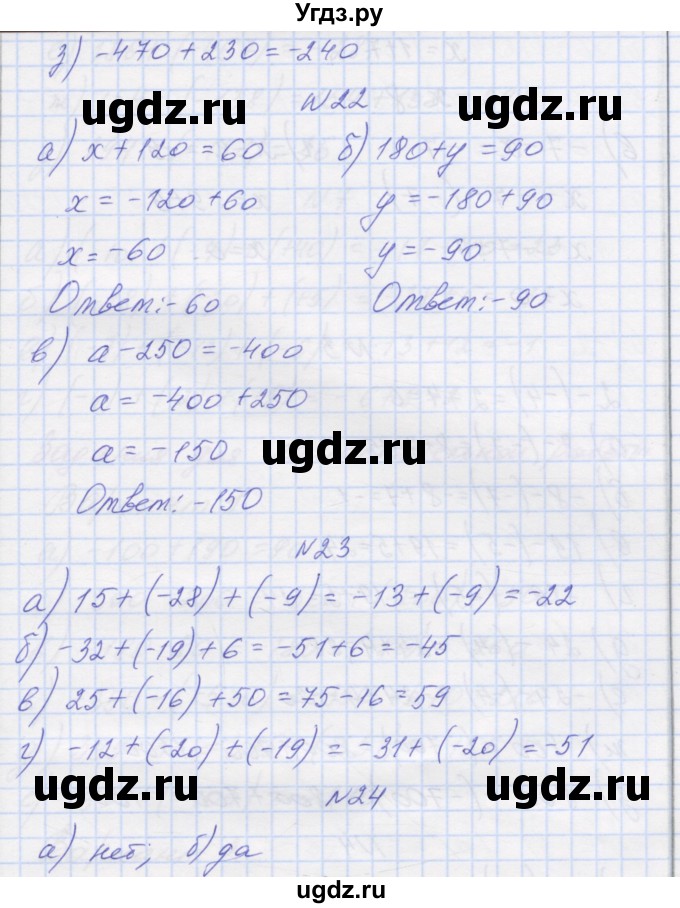 Угдз.ру
з) -470 + 230 = -240
ugdz.ru ugdz.ru
№22
а) x + 120 = 60 б) 180 + y = 90
x = -120 + 60 y = -180 + 90
x = -60 y = -90
Ответ: -60 Ответ: -90
в) a - 250 = -400
a = -400 + 250
a = -150
ugdz.ru ugdz.ru
Ответ: -150
№23
а) 15 + (-28) + (-9) = -13 + (-9) = -22
б) -32 + (-19) + 6 = -51 + 6 = -45
в) 25 + (-16) + 50 = 75 - 16 = 59
г) -12 + (-20) + (-19) = -31 + (-20) = -51
ugdz.ru ugdz.ru
№24
а) нет; б) да
ugdz.ru